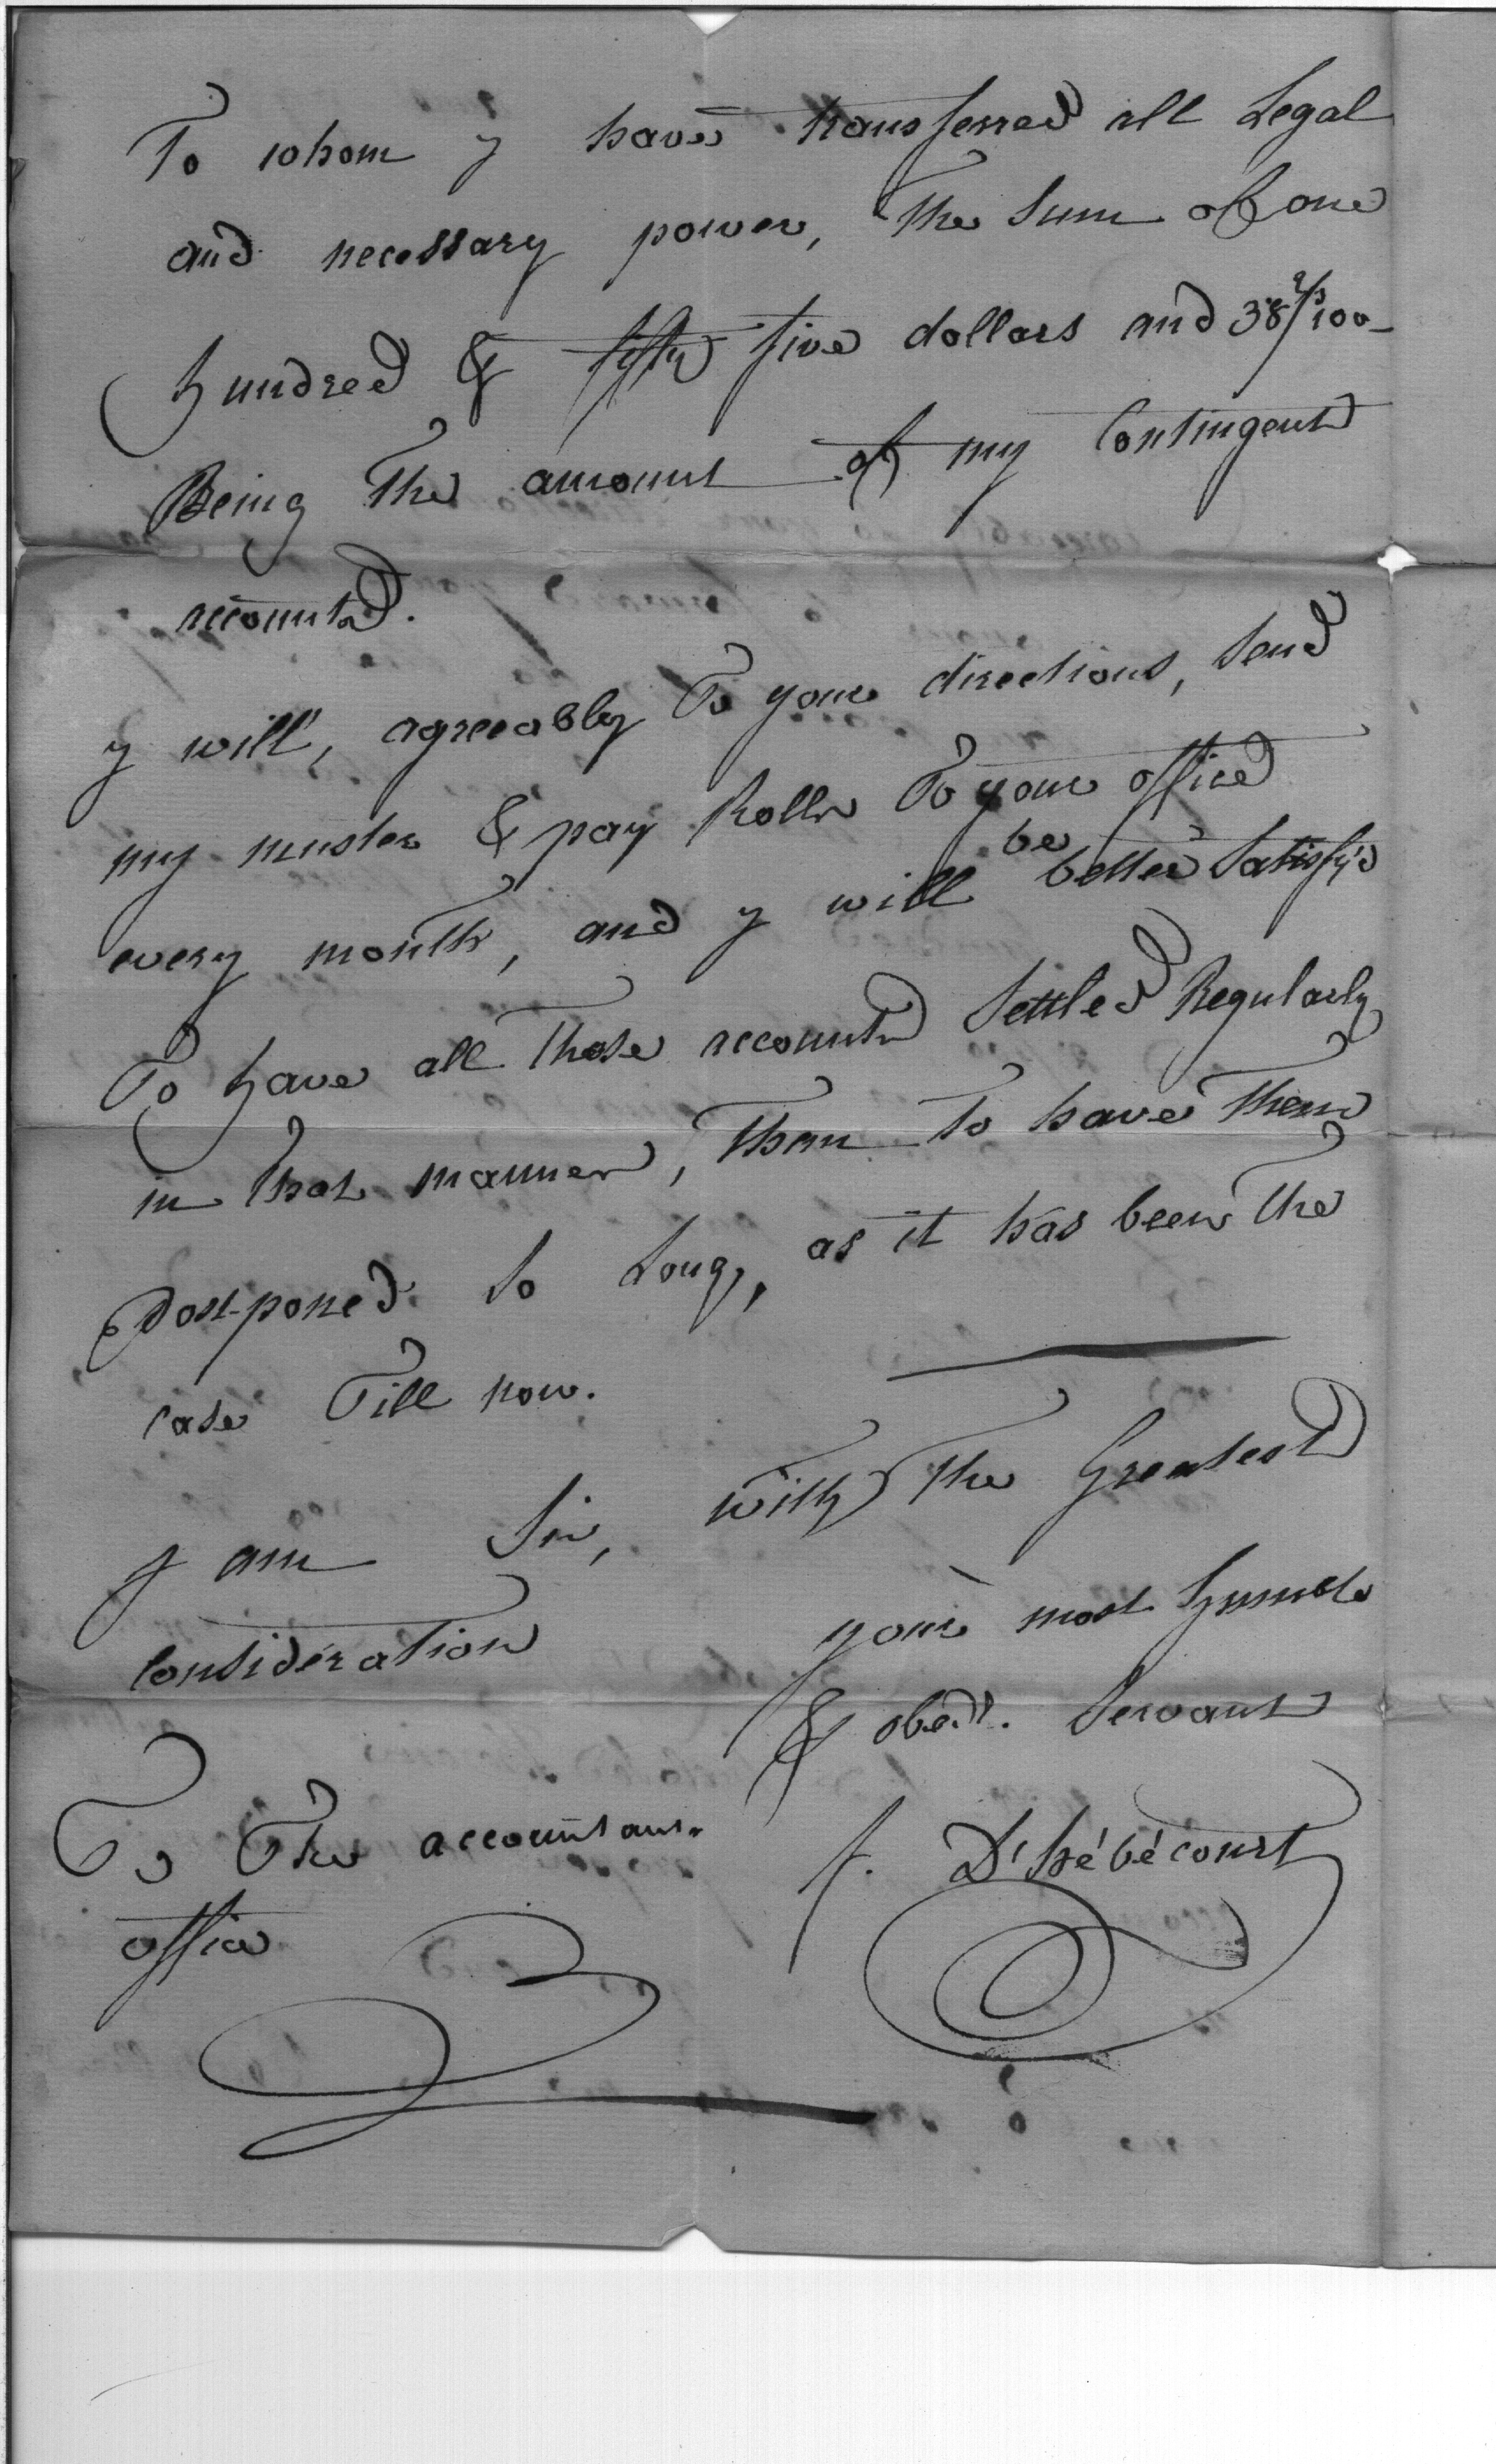 To whom y have transferred all Legal
and necessary power, The Sum of one
hundred & fifty five dollars and 38 2/3/100
Being The amount of my Contingent
accounts.
y will, agreeably To your directions, Send
my muster & pay Rolls To your office
every month, and y will be better Satisfy'd
To have all Those accounts Settled Regularly
in That manner, Than To have Them
postponed So Long, as it has been The
case Till now.
y am Sir, with The Greatest
Consideration
your most humble
& obedt. Servant
To The accountant
office
f. D'hébécourt